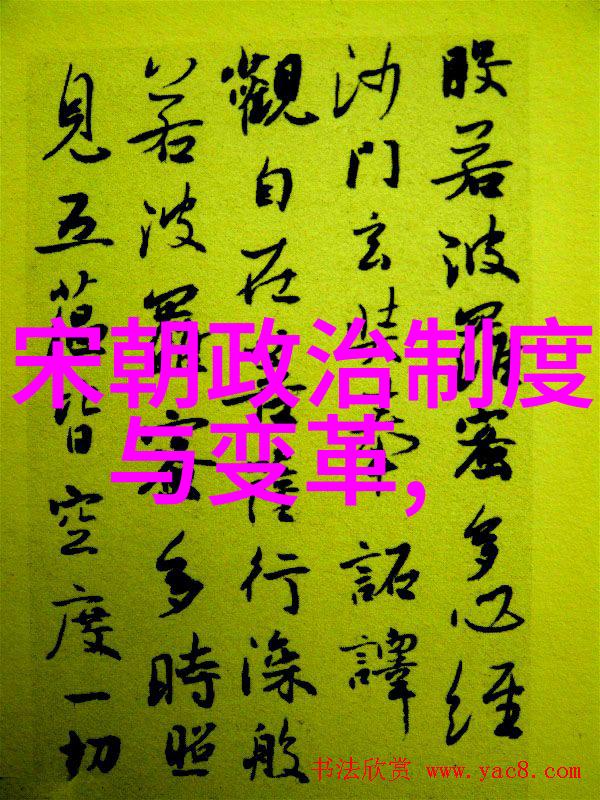 般若波羅蜜多心經
沙門玄奘奉詔譯
觀自在菩薩行深般
若波羅蜜多時照
見五蘊皆空度一切
宋朝政治制度
与变革,
书法欣赏 www.yac8.com